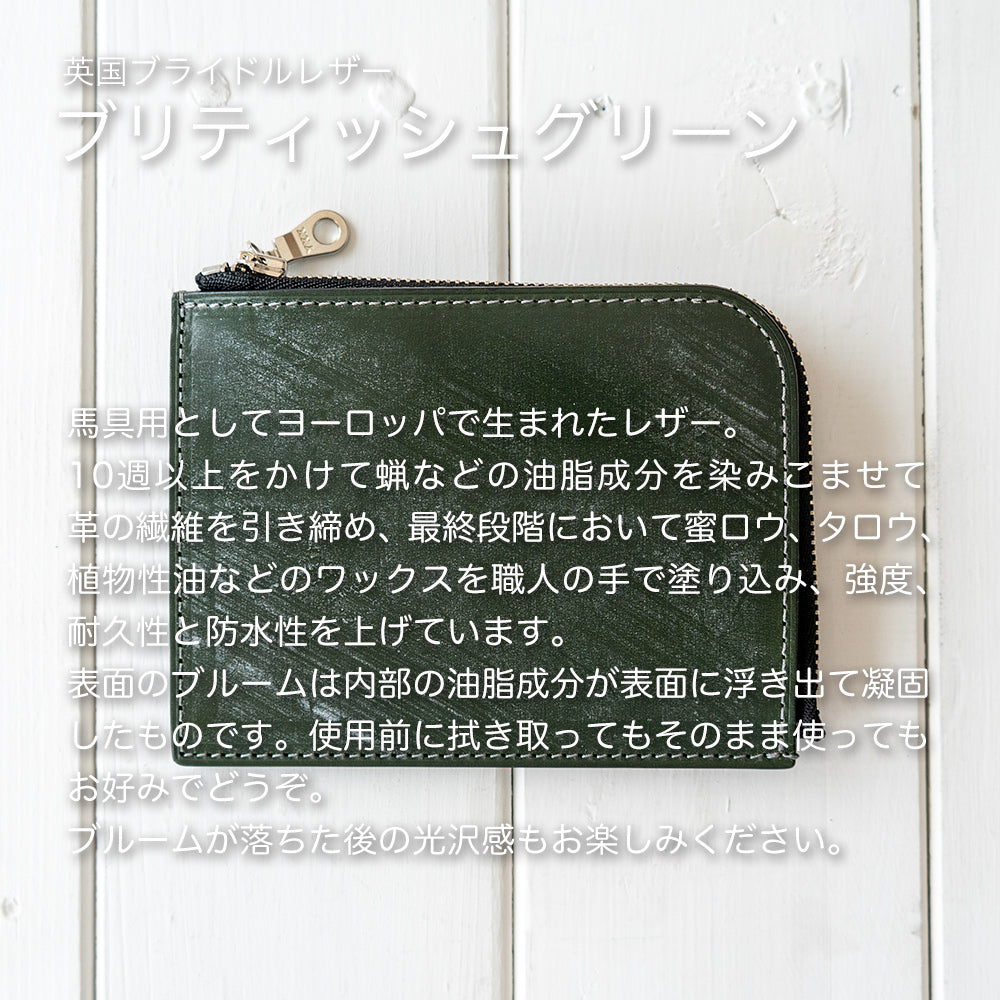 英国ブライドルレザー
ブリティッシュグリーン
馬具用としてヨーロッパで生まれたレザー。
10週以上をかけて蝋などの油脂成分を染みこませて
革の繊維を引き締め、最終段階において蜜ロウ、タロウ、
植物性油などのワックスを職人の手で塗り込み、強度、
耐久性と防水性を上げています。
表面のブルームは内部の油脂成分が表面に浮き出て凝固
したものです。使用前に拭き取ってもそのまま使っても
お好みでどうぞ。
ブルームが落ちた後の光沢感もお楽しみください。